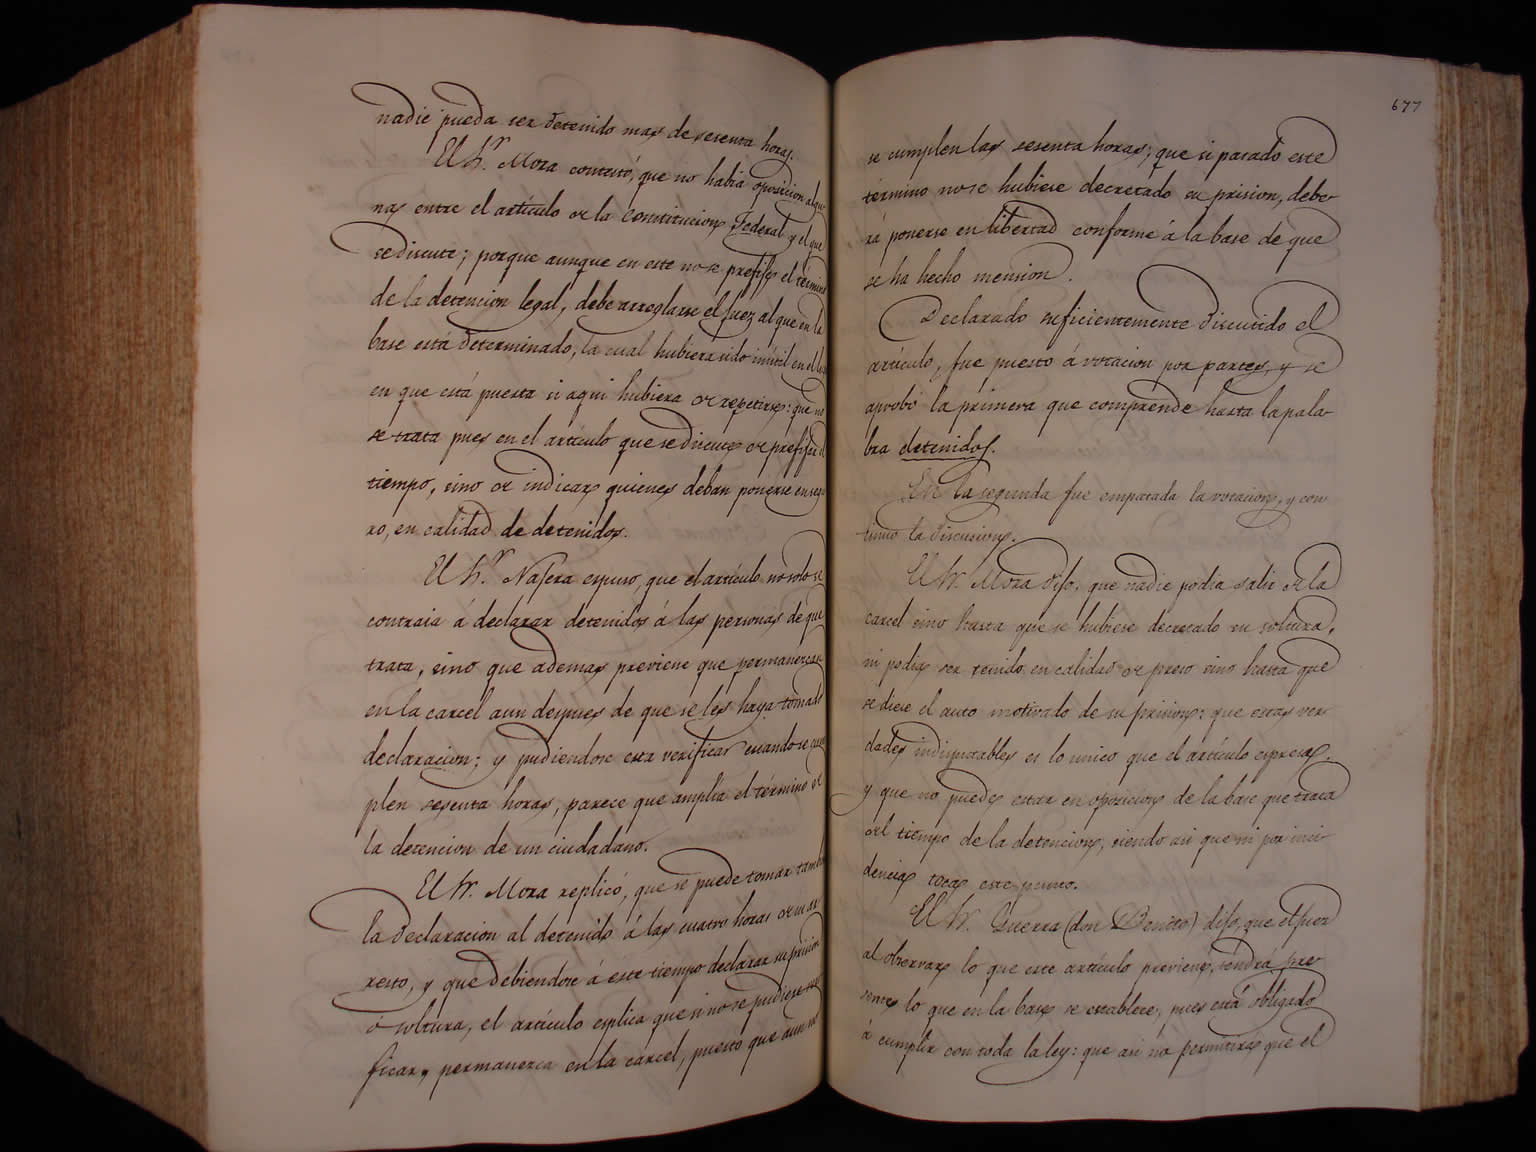 nadie pueda ser detenido mas de sesenta horas.
El Sr. Mora contestó, que no habia oposicion algu-
na entre el artículo de la Constitucion Federal y el que
se discute; porque aunque en este no se prefije el término
de la detencion legal, debe arreglarse el juez al que en la
base está determinado, la cual hubiera sido inútil en el
en que está puesta si aqui hubiera de repetirse: que no
se trata pues en el artículo que se discute de prefijar el
tiempo, sino de indicar quienes deban ponerse en segu-
ro, en calidad de detenidos.
El Sr. Najera espuso, que el artículo no solo se
contraia á declarar detenidos á las personas de que
trata, sino que ademas previene que permanezcan
en la carcel aun despues de que se les haya tomado
declaracion; y pudiendose esta verificar cuando se cum-
plen sesenta horas, parece que amplia el término de
la detencion de un ciudadano.
El Sr. Mora replicó, que se puede tomar tambien
la declaracion al detenido á las cuatro horas de su ar-
resto, y que debiendose á este tiempo declarar su prision
ó soltura, el artículo esplica que si no se pudiese veri-
ficar, permanezca en la carcel, puesto que aun no
677
se cumplen las sesenta horas; que si pasado este
término no se hubiese decretado su prision, debe-
rá ponerse en libertad conforme á la base de que
se ha hecho mension.
Declarado suficientemente discutido el
artículo, fue puesto á votacion por partes, y se
aprobó la primera que comprende hasta la pala-
bra detenidos.
En la segunda fue empatada la votacion, y con-
tinuó la discusion.
El Sr. Mora dijo: que nadie podia salir de la
carcel sino hasta que se hubiese decretado su soltura,
ni podia ser tenido en calidad de preso sino hasta que
se diese el auto motivado de su prision: que estas ver-
dades indisputables es lo unico que el artículo espresa,
y que no puede estar en oposicion de la base que trata
del tiempo de la detencion, siendo asi que ni por inci-
dencia toca este punto.
El Sr. Guerra (don Benito) dijo, que el juez
al observar lo que este artículo previene, tendrá pre-
sente lo que en la base se establece, pues está obligado
á cumplir con toda la ley: que asi no permitirá que el